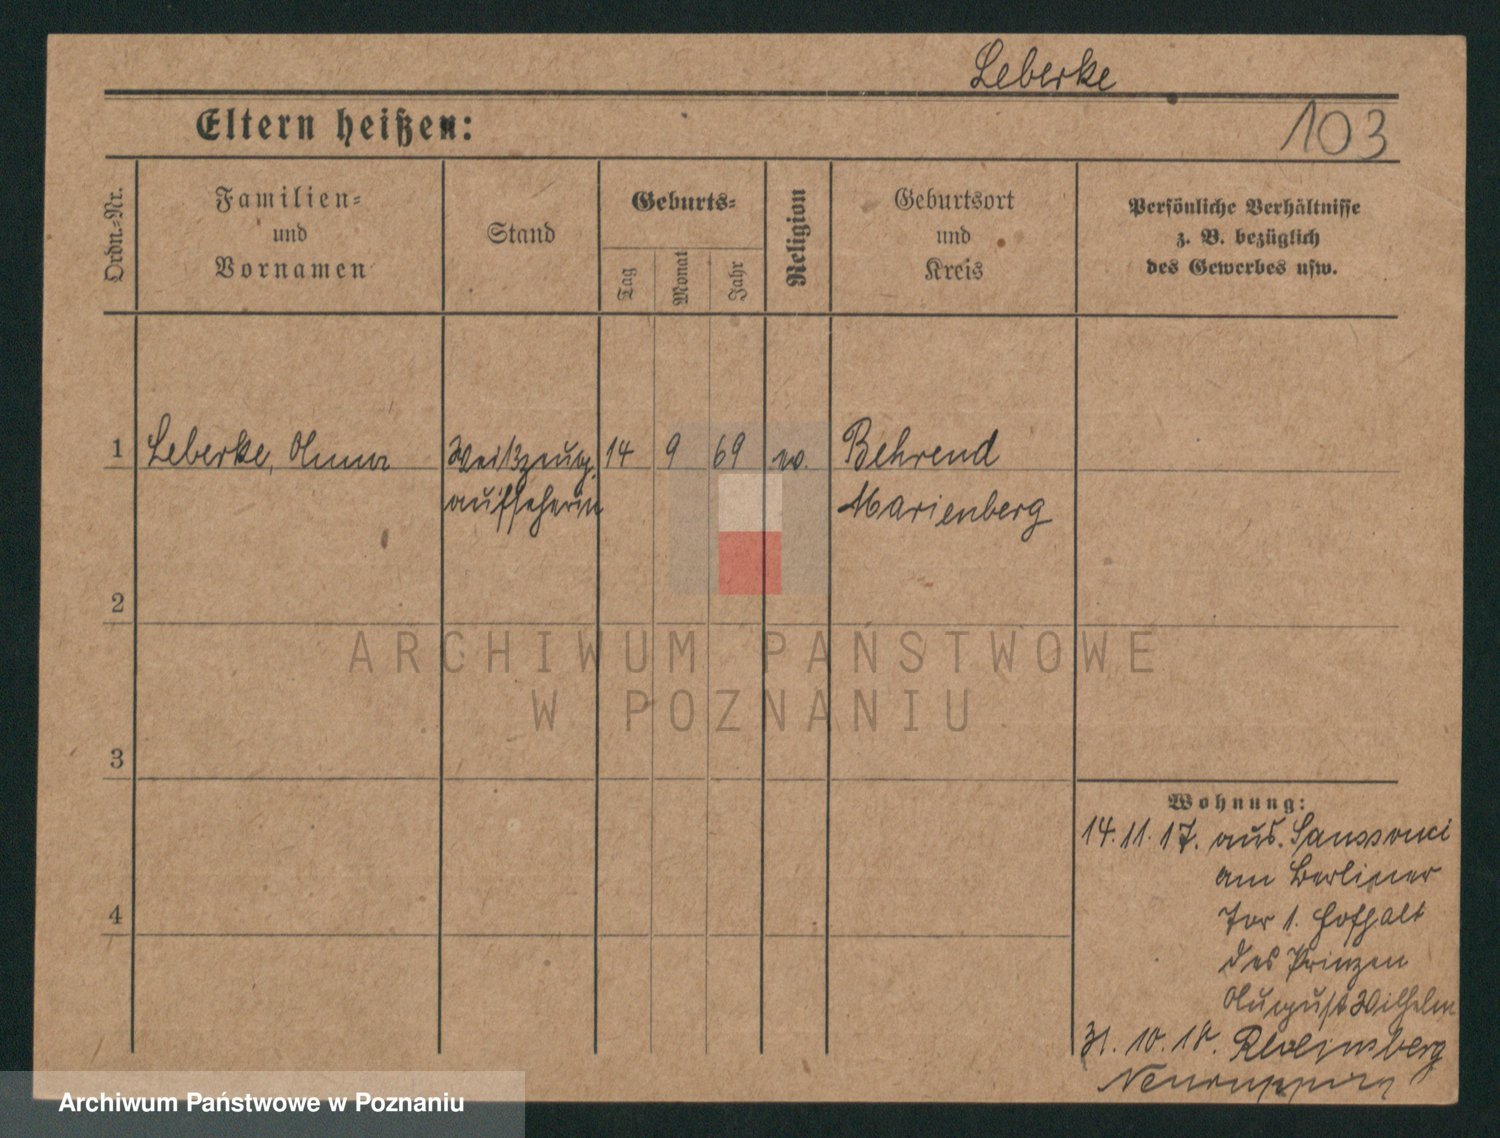 Leberke
Eltern heißen:
103
Ordn.=Nr.
Familien=
und
Vornamen
Stand
Geburts=
Tag
Monat
Jahr
Religion
Geburtsort
und
Kreis
Persönliche Verhältnisse
z. B. bezüglich
des Gewerbes usw.
1 Leberke, Anna Weißzeug= 14 9 69 ev. Behrend
aufseherin Marienberg
2
ARCHIWUM PAŃSTWOWE
W POZNANIU
3
Wohnung:
14.11.17. aus. Sanssouci
am Berliner
Tor 1. Hofhalt
des Prinzen
August Wilhelm
4
31.10.18. Rheinsberg
Neuruppin
Archiwum Państwowe w Poznaniu